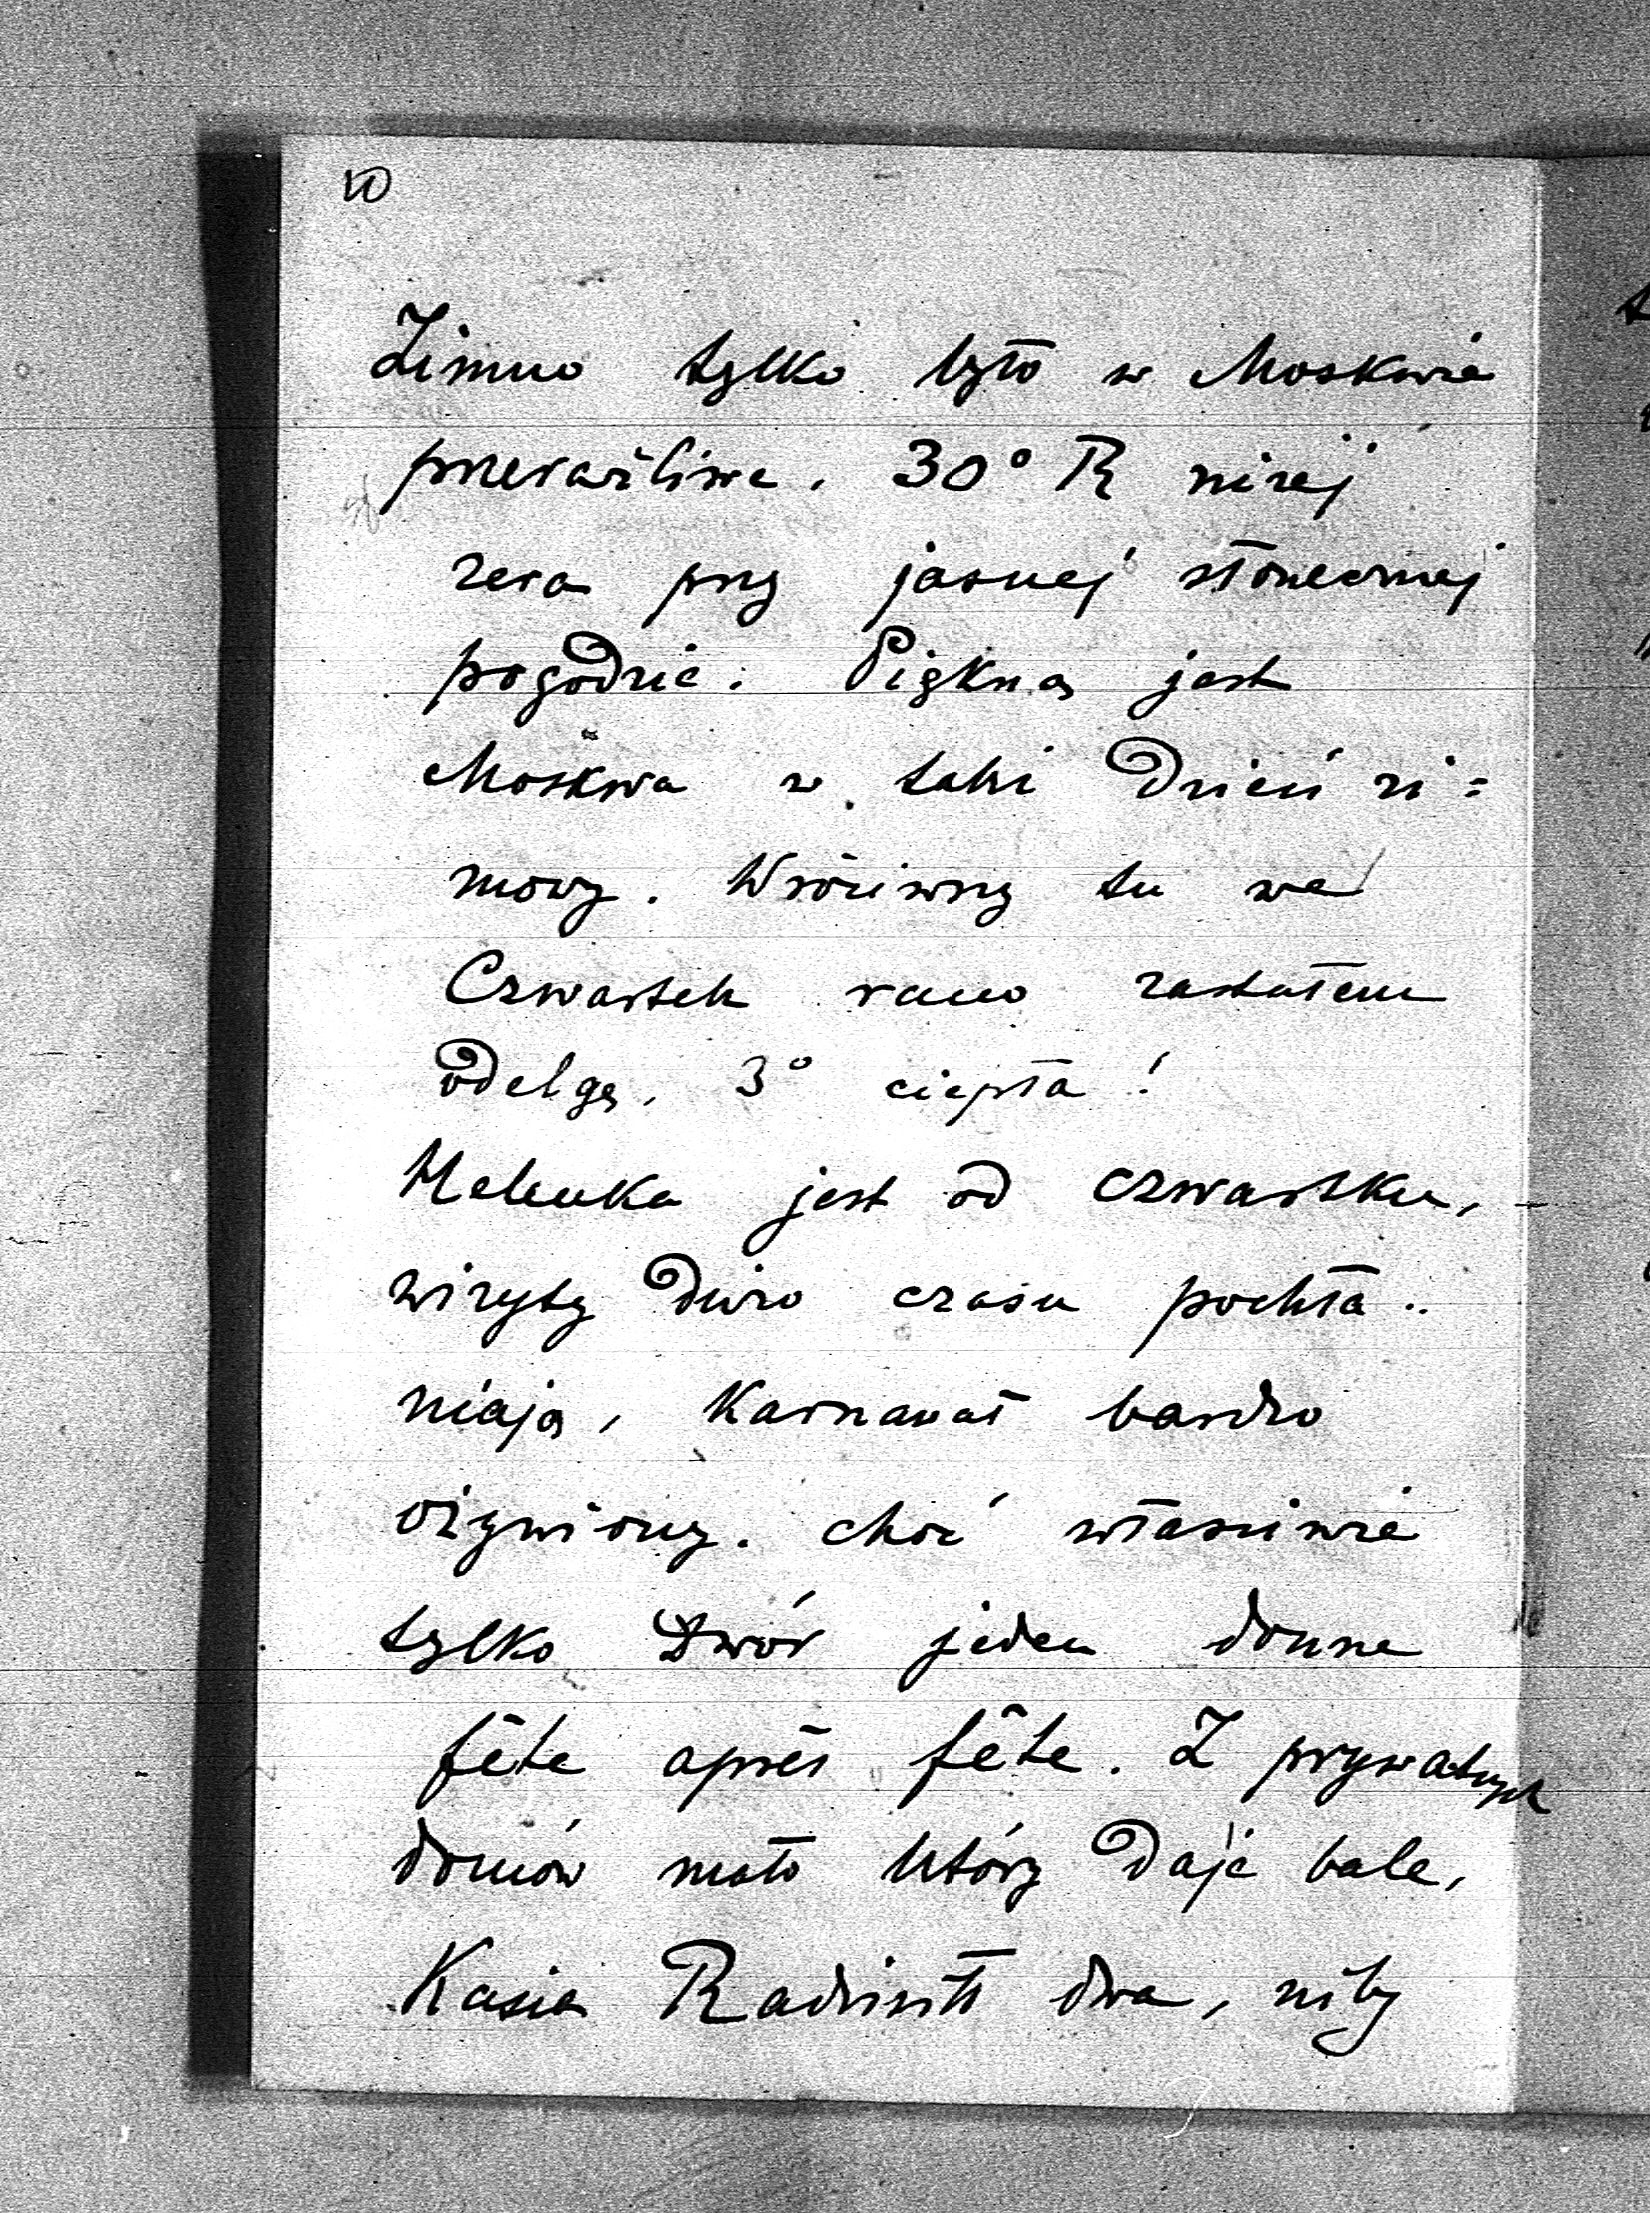 Zimno tylko było w Moskwie
przeraźliwe. 30° R niżej
zera przy jasnej słonecznej
pogodzie. Piękna jest
Moskwa w taki dzień zi=
mowy. Wróciwszy tu we
Czwartek rano zastałem
odelgę, 3° ciepła!
Helenka jest od czwartku,
wizyty dużo czasu pochła..
niają, Karnawał bardzo
ożywiony. choć właściwie
tylko Dwór jeden donne
fête après fête. Z prywatnych
domów mało który daje bale,
Kasia Radziwiłł dwa, niby